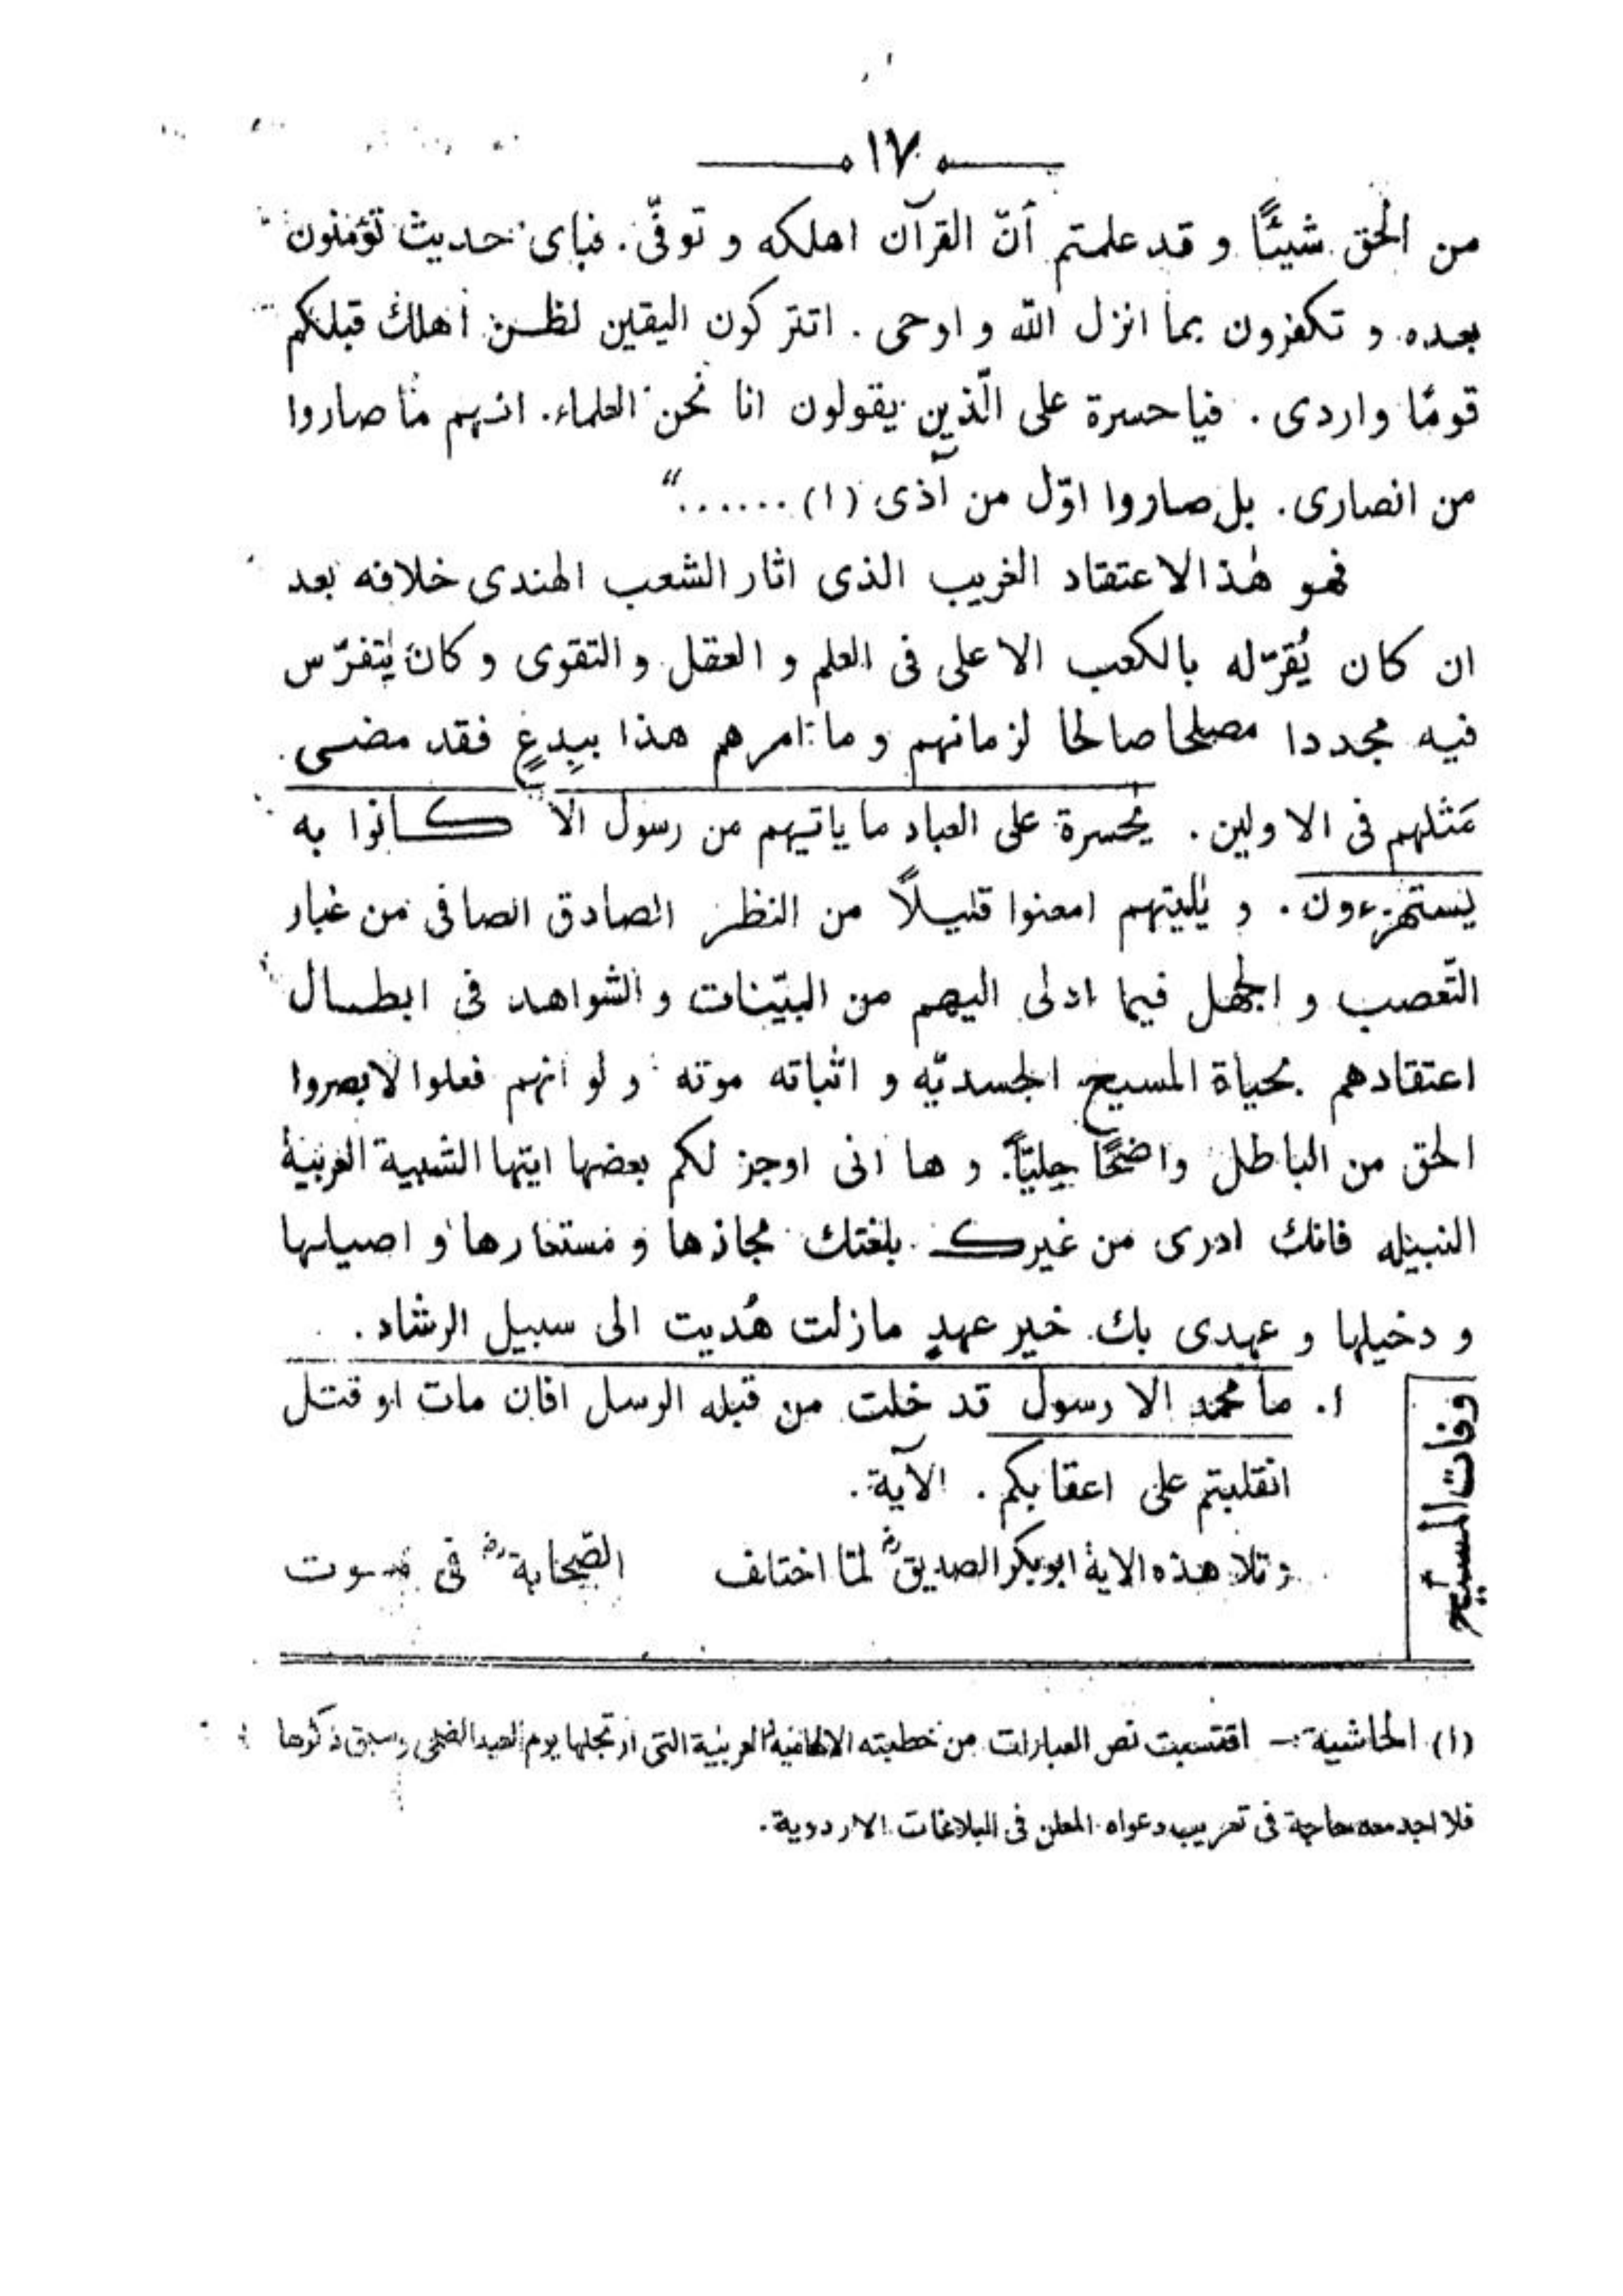 ١٧
من الحق شيئًا و قد علمتم أنّ القرآن اهلكه و توفّى. فباى حديث تؤمنون
بعده و تكفرون بما انزل الله و اوحى. اتتركون اليقين لظن اهلك قبلكم
قومًا واردى. فياحسرة على الّذين يقولون انا نحن العلماء. انهم ما صاروا
من انصارى. بل صاروا اوّل من آذى (١) ......“
فهو هٰذا الاعتقاد الغريب الذى اثار الشعب الهندى خلافه بعد
ان كان يُقرّ له بالكعب الاعلى فى العلم و العقل و التقوى و كان يتفرّس
فيه مجددا مصلحا صالحا لزمانهم و ما امرهم هذا ببِدعٍ فقد مضى
مَثلهم فى الاولين. يٰحسرة على العباد ما ياتيهم من رسول الا كانوا به
يستهزءون. و يٰليتهم امعنوا قليلًا من النظر الصادق الصافى من غبار
التّعصب و الجهل فيما ادلى اليهم من البيّنات و الشواهد فى ابطال
اعتقادهم بحياة المسيح الجسديّه و اثباته موته و لو انهم فعلوا لابصروا
الحق من الباطل واضحًا جليّاً. و ها انى اوجز لكم بعضها ايتها الشبيبة العربية
النبيله فانك ادرى من غيرك بلغتك مجازها و مستعارها و اصيلها
و دخيلها و عهدى بك خير عهدٍ مازلت هُديت الى سبيل الرشاد.
وفات المسيح
١. ما محمد الا رسول قد خلت من قبله الرسل افان مات او قتل
انقلبتم على اعقابكم. الآية.
و تلا هذه الاية ابوبكر الصديقؓ لمّا اختلف الصّحابةؓ فى موت
(١) الحاشية:- اقتسبت نص العبارات من خطبته الالهامية العربية التى ارتجلها يوم العيد الضحى وسبق ذكرها
فلا اجد معه حاجة فى تعريب دعواه المعلن فى البلاغات الاردوية.